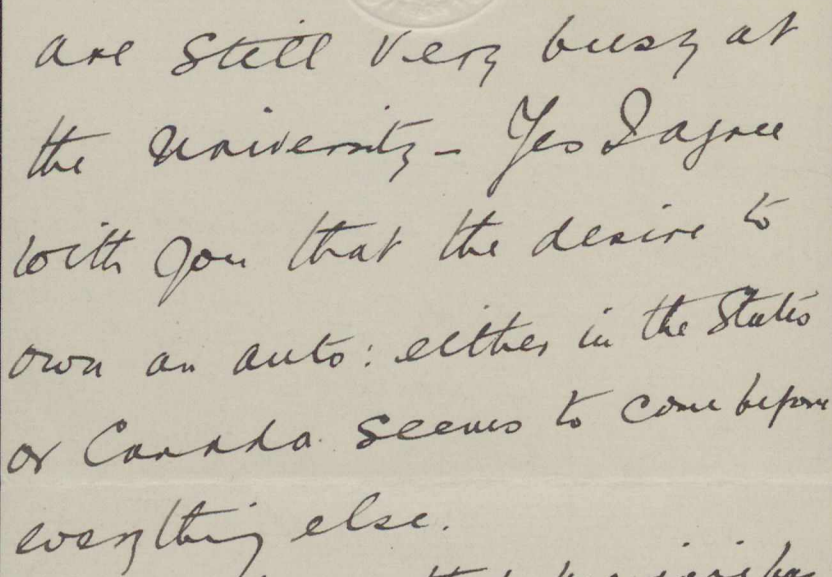 are still very busy at
the University – Yes I agree
with you that the desire to
own an auto: either in the States
or Canada. seems to come before
everything else.